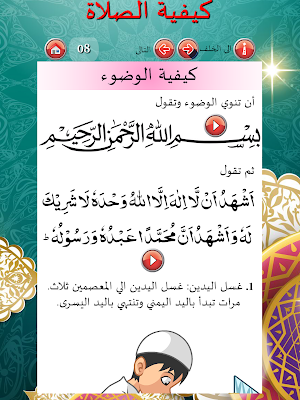 كيفية الصلاة
08 التال الى الخلف
كيفية الوضوء
أن تنوي الوضوء وتقول
بِسْمِ اللهِ الرَّحْمٰنِ الرَّحِيْمِ
ثم تقول
اَشْهَدُ اَنْ لَّا اِلٰهَ اِلَّا اللهُ وَحْدَهٗ لَا شَرِيْكَ
لَهٗ وَاَشْهَدُ اَنَّ مُحَمَّدًا عَبْدُهٗ وَرَسُوْلُهٗ ؕ
1. غسل اليدين: غسل اليدين الي المعصمين ثلاث.
مرات تبدأ باليد اليمني وتنتهي باليد اليسرى.